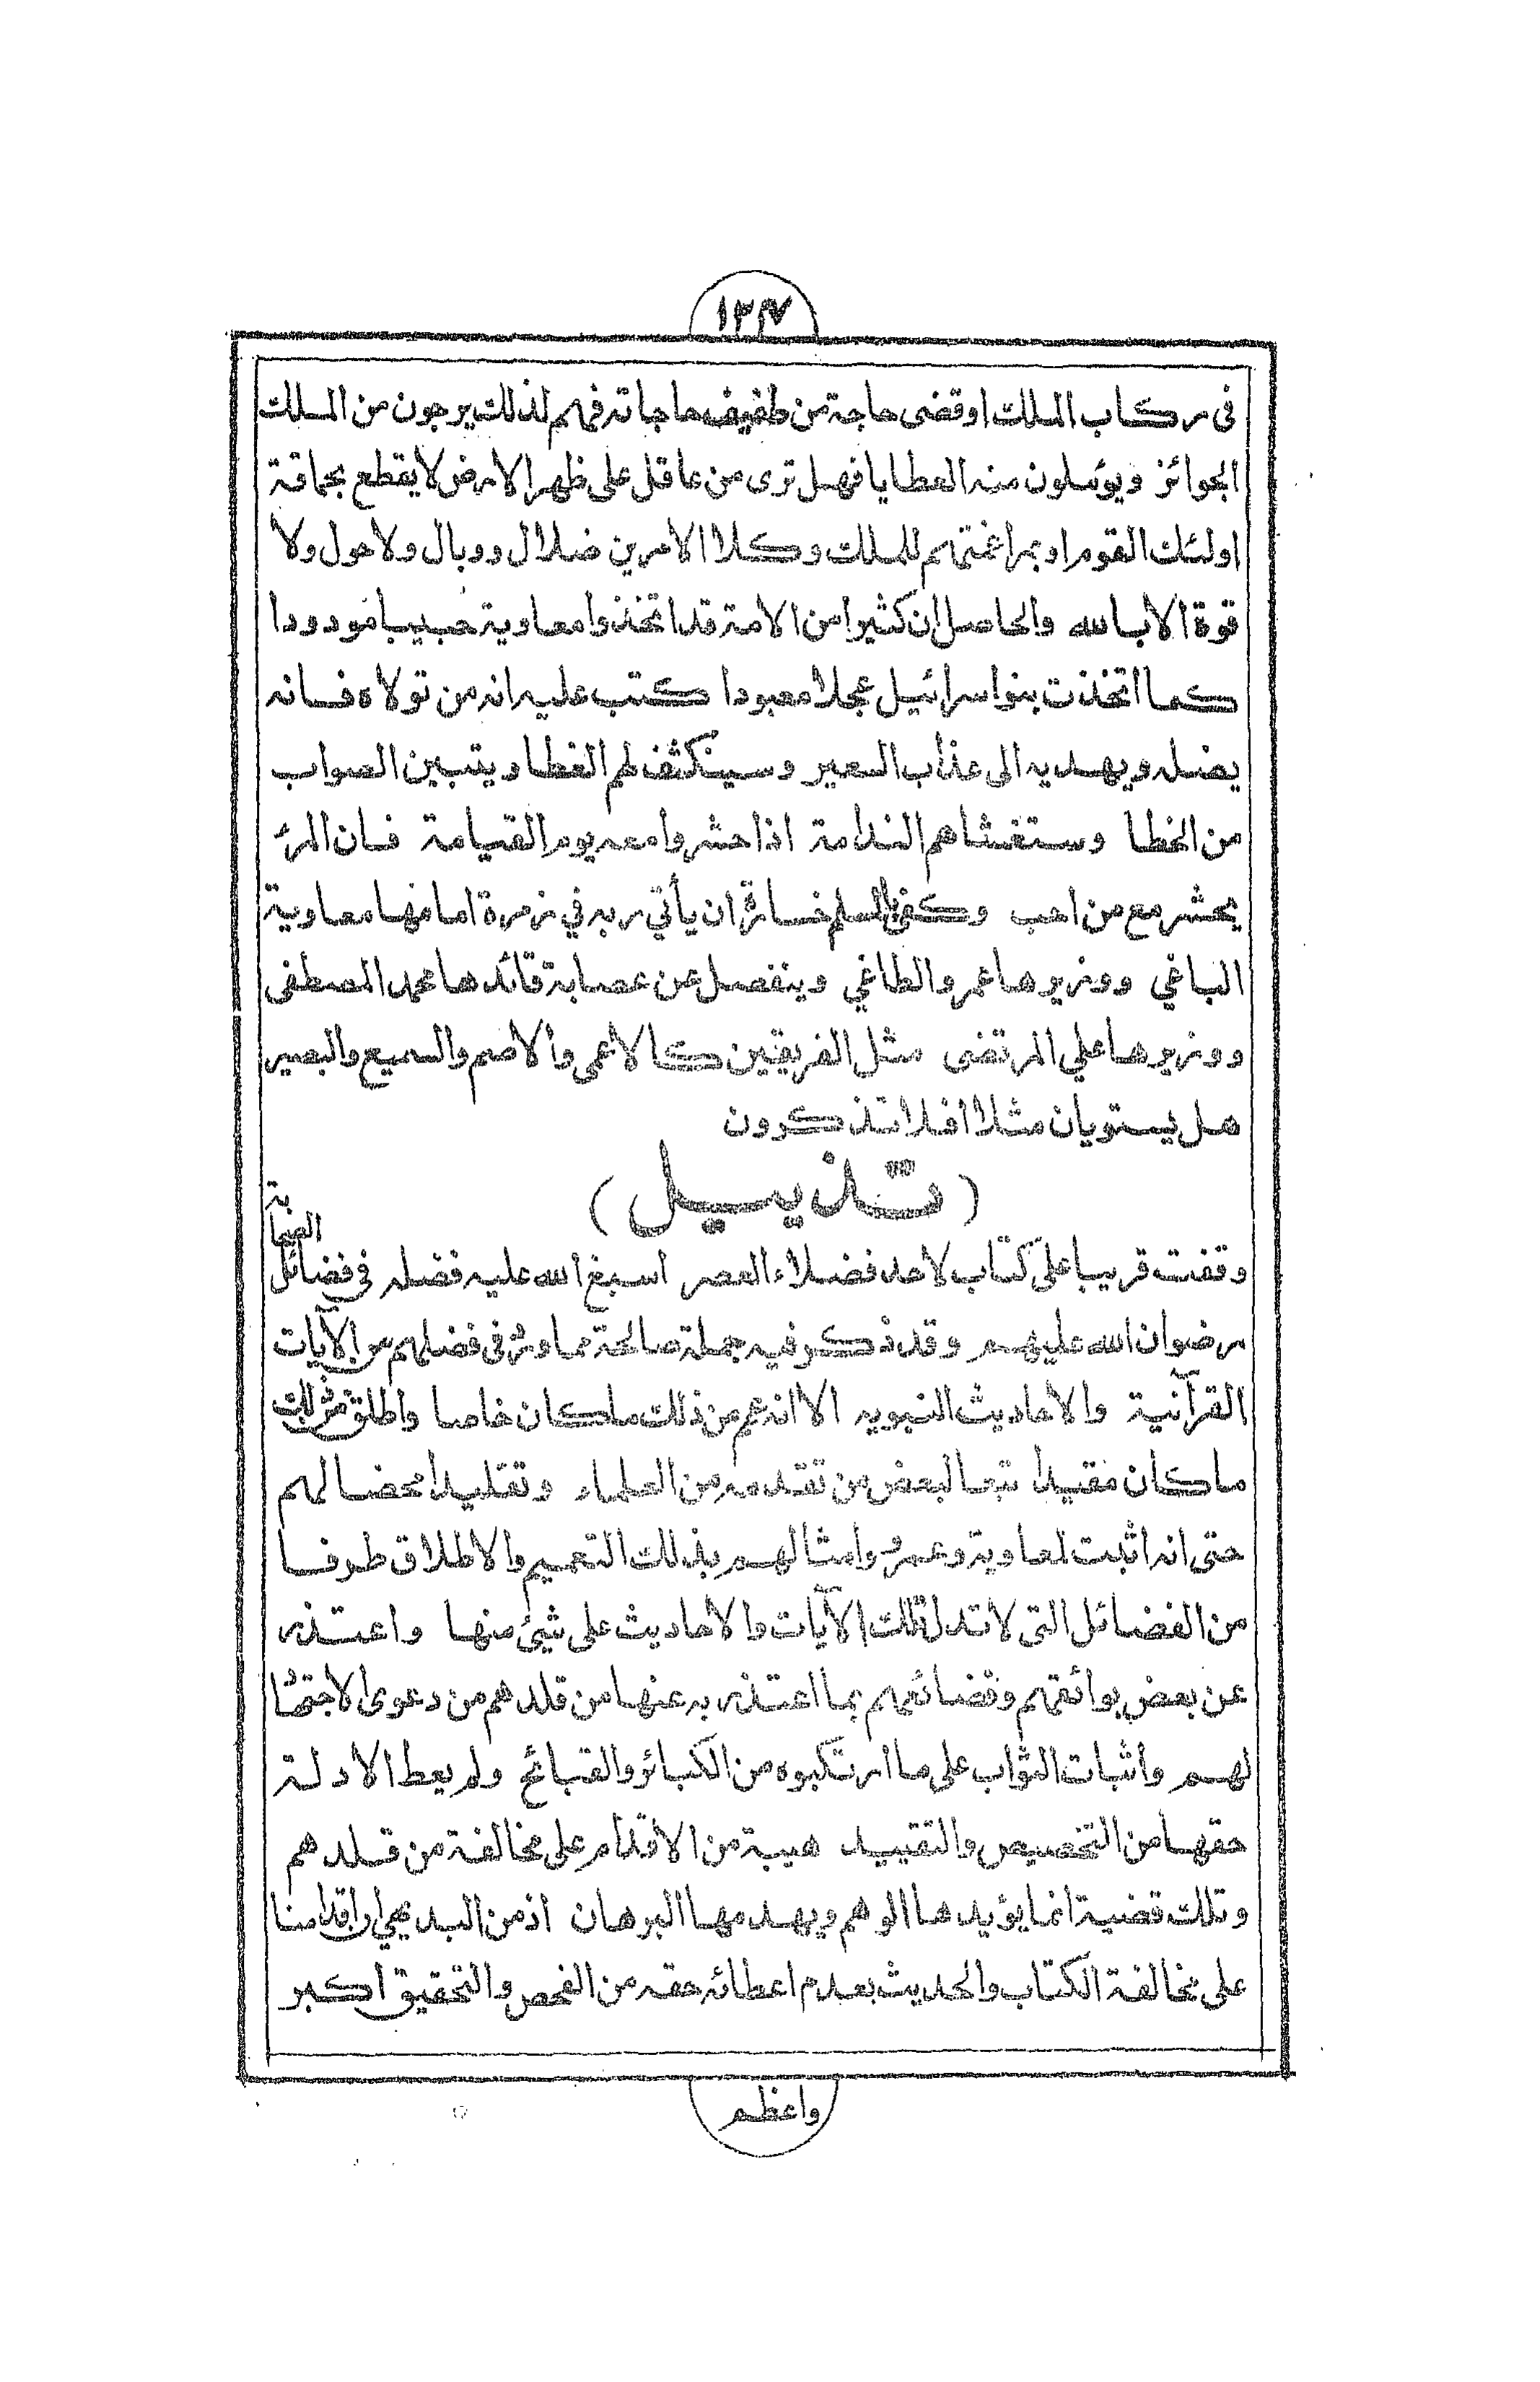 ١٣٧
في ركاب الملك او قضى حاجة من طفيف حاجاته فهم لذلك يرجون من الملك
الجوائز ويؤملون منه العطايا فهل ترى من عاقل على ظهر الارض لا يقطع بحماقة
اولئك القوم او بمراغمتهم للملك وكلا الامرين ضلال ووبال ولا حول ولا
قوة الا بالله والحاصل ان كثيرا من الامة قد اتخذوا معاوية حبيبا مودودا
كما اتخذت بنوا سرائيل عجلا معبودا كتب عليه انه من تولاه فانه
يضله ويهديه الى عذاب السعير وسينكشف لهم الغطا ويتبين الصواب
من الخطا وستغشاهم الندامة اذا حشروا معه يوم القيامة فان المرء
يحشر مع من احب وكفى المسلم خسارة ان يأتي ربه في زمرة امامها معاوية
الباغي ووزيرها عمرو الطاغي وينفصل عن عصابة قائدها محمد المصطفى
ووزيرها علي المرتضى مثل الفريقين كالاعمى والاصم والسميع والبصير
هل يستويان مثلا افلا تذكرون
(تذييل)
وقفت قريبا على كتاب لاحد فضلاء العصر اسبغ الله عليه فضله في فضائل الصحابة
رضوان الله عليهم وقد ذكر فيه جملة صالحة مما ورد في فضلهم من الآيات
القرآنية والاحاديث النبويه الا انه عم من ذلك ما كان خاصا واطلق من ذلك
ما كان مقيدا تبعا لبعض من تقدمه من العلماء وتقليدا محضا لهم
حتى انه اثبت لمعاوية وعمرو وامثالهم بذلك التعميم والاطلاق طرفا
من الفضائل التى لا تدل تلك الآيات والاحاديث على شيئ منها واعتذر
عن بعض بوائقهم وفضائحهم بما اعتذر به عنها من قلدهم من دعوى الاجتهاد
لهم واثبات الثواب على ما ارتكبوه من الكبائر والقبائح ولم يعط الادلة
حقها من التخصيص والتقييد هيبة من الاقدام على مخالفة من قلدهم
وتلك قضية انما يؤيدها الوهم ويهدمها البرهان اذ من البديهي ان اقدامنا
على مخالفة الكتاب والحديث بعدم اعطائه حقه من الفحص والتحقيق اكبر
واعظم